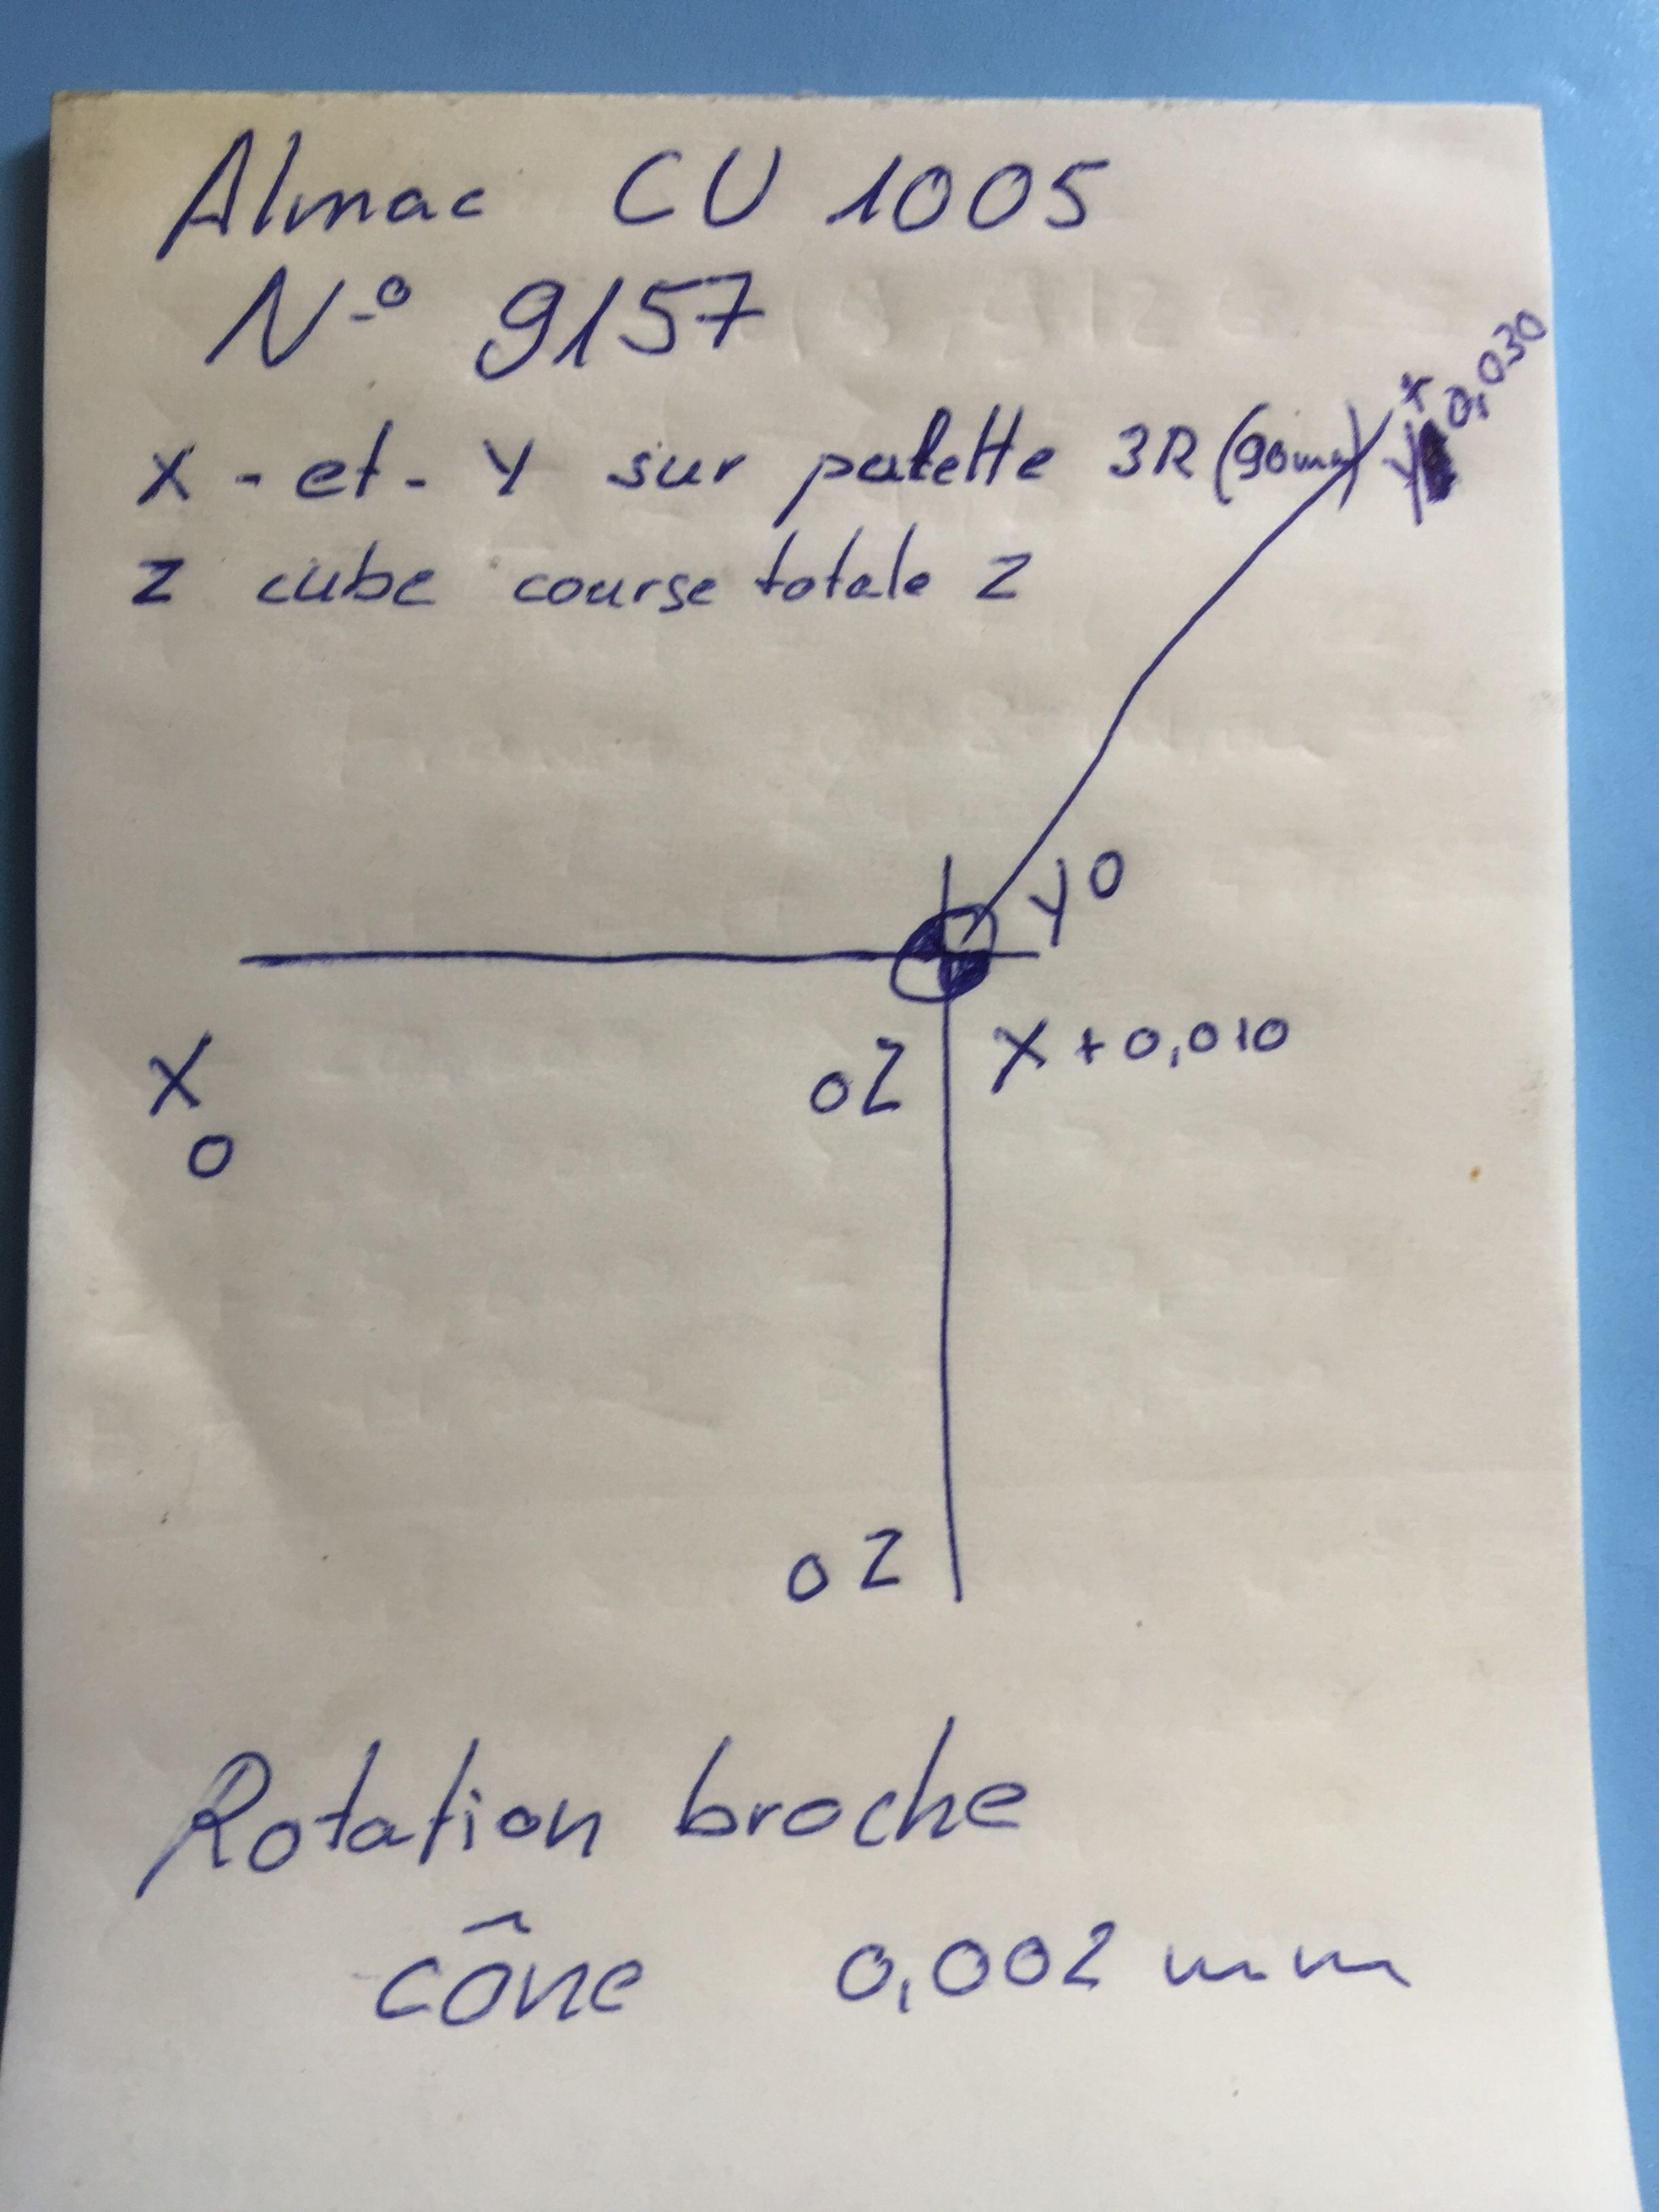 Almac CU 1005
N° 9157
X - et - Y sur palette 3R (90mm)
Z cube course totale Z
Y + 0,030
Y 0
X + 0,010
0Z
X
0
0Z
Rotation broche
cône 0,002 mm